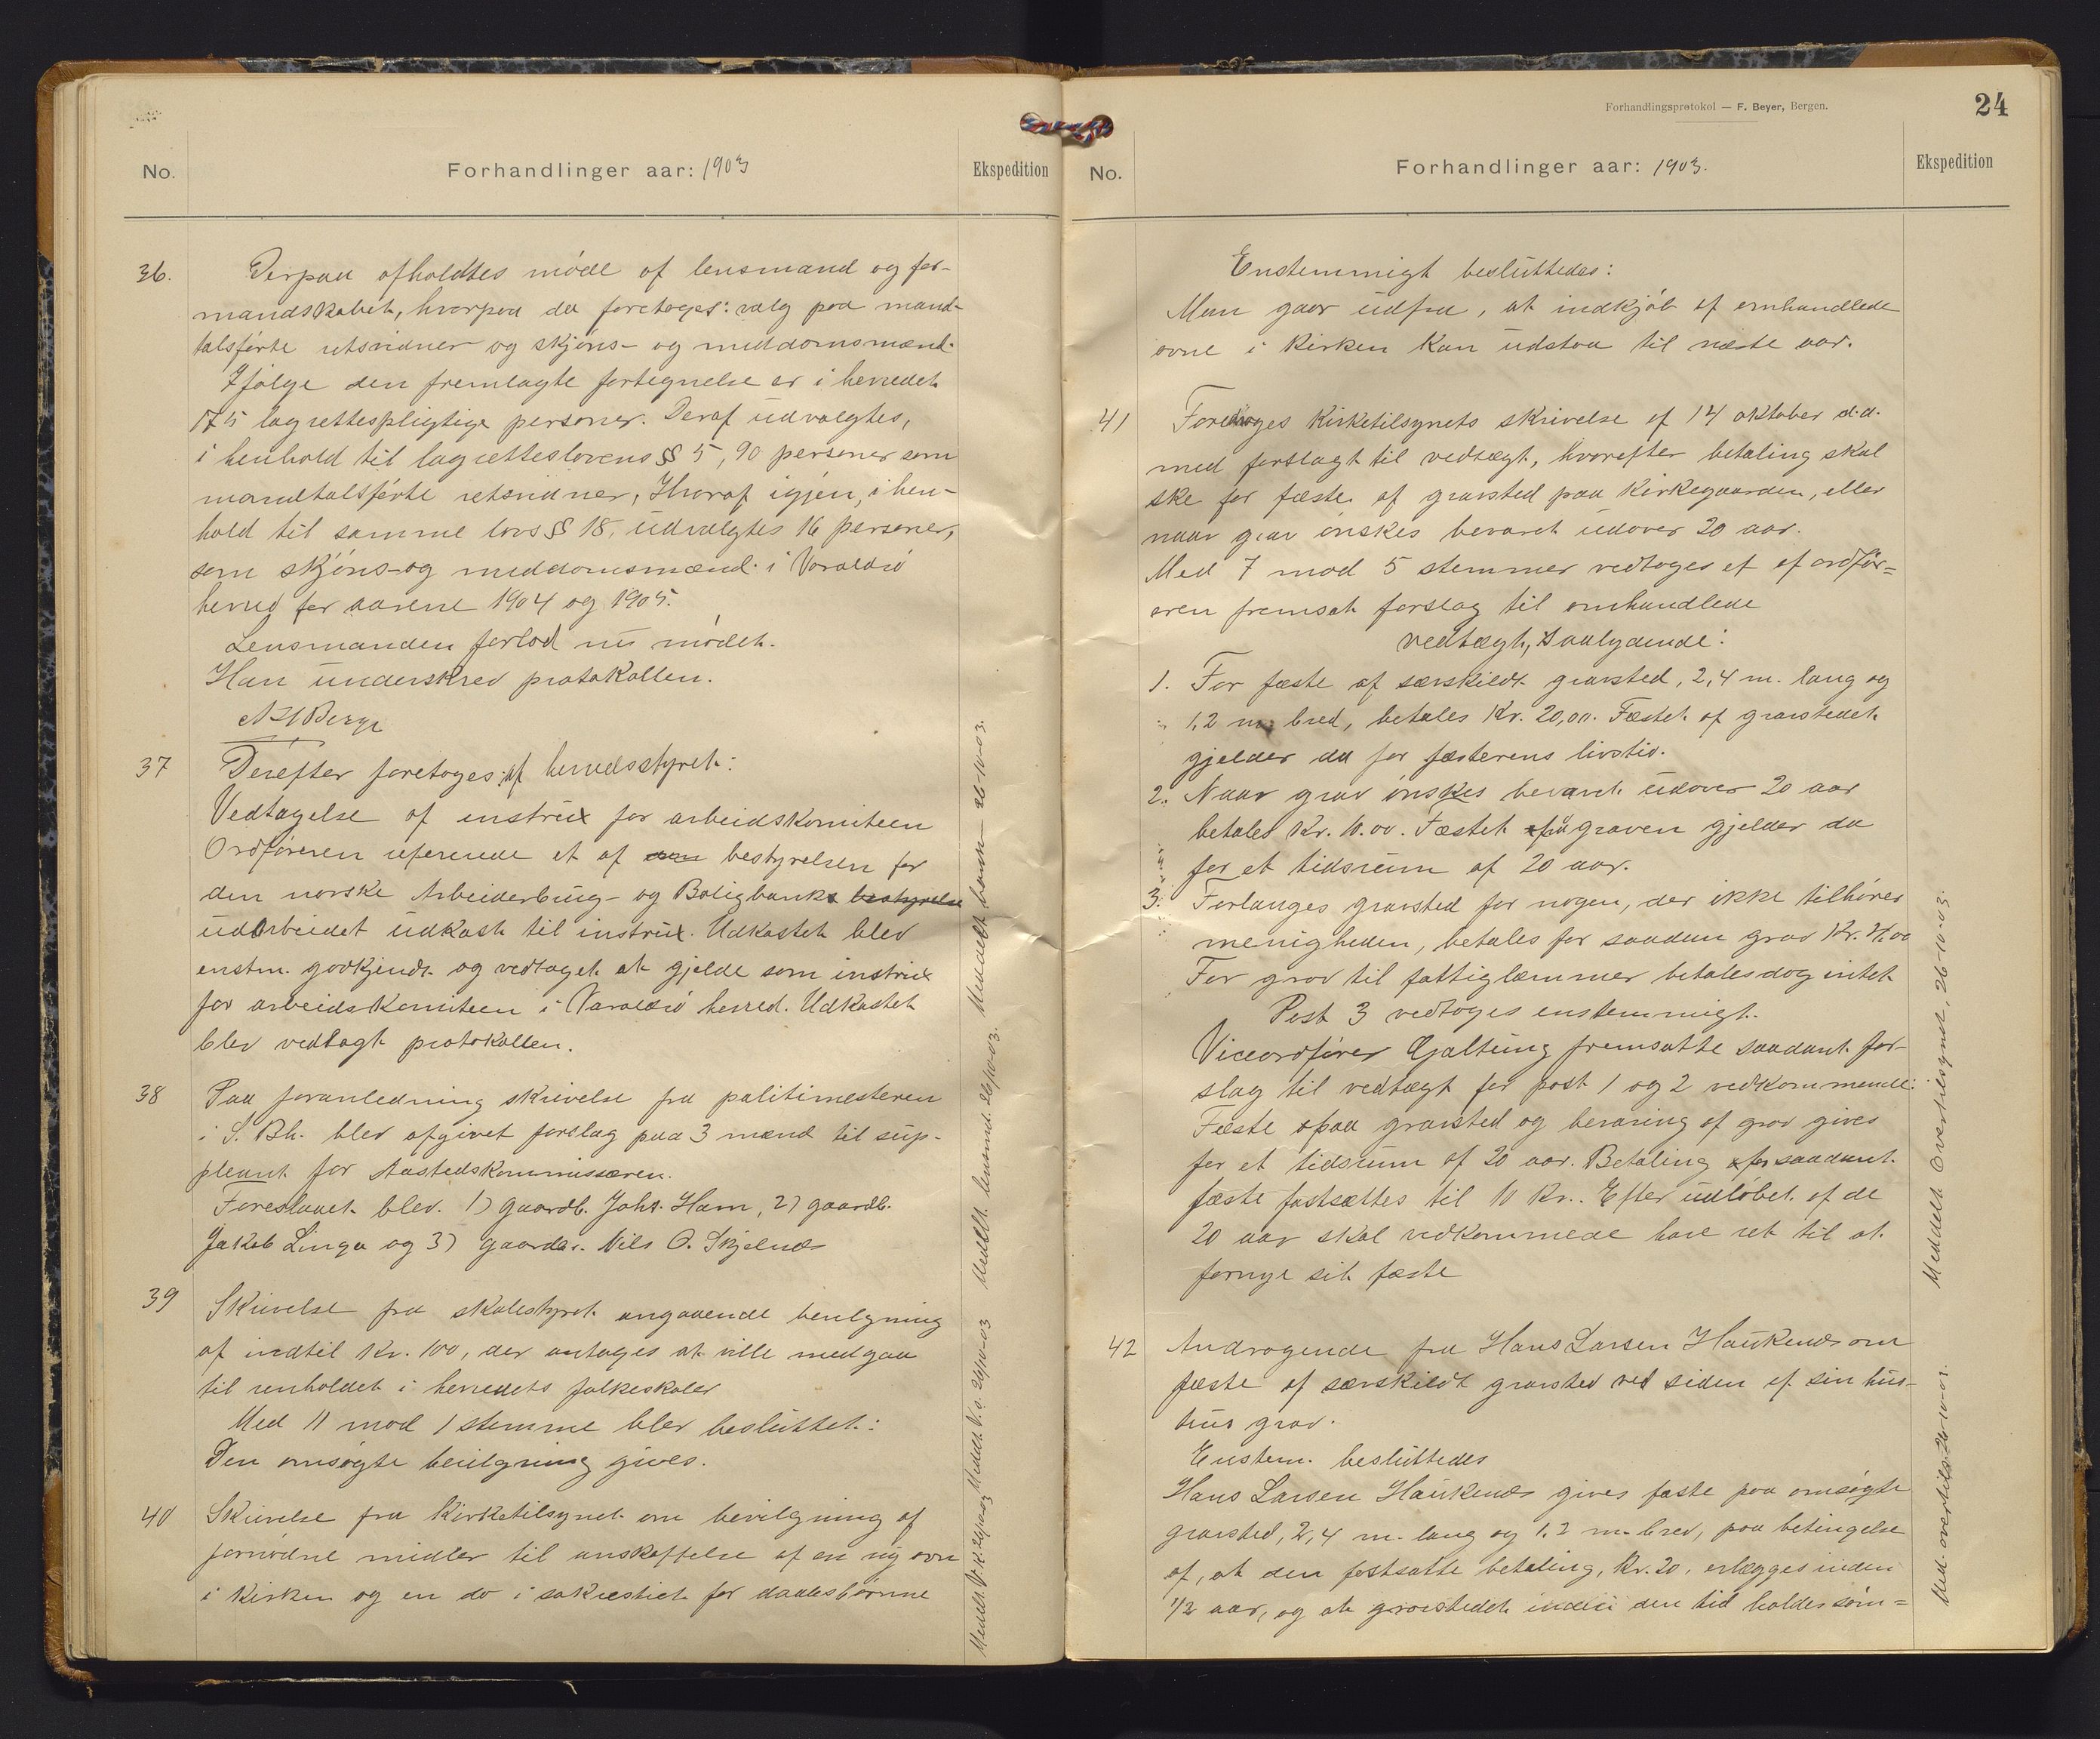 No.
Forhandlinger aar: 1903
Ekspedition
36. Derpaa afholdtes møde af lensmand og for-
mandskabet, hvorpaa da foretoges: valg paa mand-
talsførte retsvidner og skjøns- og meddomsmænd.
Ifølge den fremlagte fortegnelse er i herredet
175 lagrettespligtige personer. Deraf udvalgtes,
i henhold til lagretteslovens §§ 5, 90 personer som
mandtalsførte retsvidner, Hvoraf igjen, i hen-
hold til samme lovs §§ 18, udvalgtes 16 personer,
som skjøns- og meddomsmænd i Varaldsø
herred for aarene 1904 og 1905.
Lensmanden forlod nu mødet.
Han underskrev protokollen.
Berge
37 Derefter foretoges: af herredsstyret:
Vedtagelse af instrux for arbeidskomiteen
Ordføreren refererede et af bestyrelsen for
den norske Arbeiderbrug- og Boligbanks bestyrelse
udarbeidet udkast til instrux. Udkastet blev
enstm. godkjendt og vedtaget at gjelde som instrux
for arbeidskomiteen i Varaldsø herred. Udkastet
blev vedlagt protokollen.
38 Paa foranledning skrivelse fra politimesteren
i S. Bh. blev afgivet forslag paa 3 mænd til sup-
pleant for Aastedskommissæren.
Foreslaaet blev. 1) gaardb. Johs. Ham, 2) gaardb.
Jakob Linga og 3) gaardbr. Nils O. Skjelnæs
39 Skrivelse fra skolestyret angaaende bevilgning
af indtil Kr. 100, der antages at ville medgaa
til renholdet i herredets folkeskoler
Med 11 mod 1 stemme blev besluttet:
Den omsøgte bevilgning gives.
40 Skrivelse fra Kirketilsynet om bevilgning af
fornødne midler til anskaffelse af en ny ovn
i Kirken og en do i sakrestiet for daabsbørnne
Meddelt banken 26-10-03.
Meddelt lensmd. 26/10-03.
Meddelt 26/10-03
Meddelt 26/10-03
Forhandlingsprotokol — F. Beyer, Bergen.
24
No.
Forhandlinger aar: 1903.
Ekspedition
Enstemmigt besluttedes:
Man gaar udfra, at indkjøb af omhandlede
ovne i Kirken kan udstaa til næste aar.
41 Foretoges Kirketilsynets skrivelse af 14 oktober d.a.
med forslagt til vedtægt, hvorefter betaling skal
ske for fæste af gravsted paa Kirkegaarden, eller
naar grav ønskes bevaret udover 20 aar.
Med 7 mod 5 stemmer vedtoges et af ordfør=
eren fremsat forslag til omhandlede
vedtægt, saalydende:
1. For fæste af særskildt gravsted, 2,4 m. lang og
1.2 m. bred, betales Kr. 20,00. Fæstet af gravstedet
gjelder da for fæsterens livstid.
2. Naar grav ønskes bevaret udover 20 aar
betales Kr. 10.00. Fæstet paa graven gjelder da
for et tidsrum af 20 aar.
3. Forlanges gravsted for nogen, der ikke tilhører
menigheden, betales for saadan grav Kr. 4.00
For grav til fattiglæmmer betales dog intet
Post 3 vedtoges enstemmigt.
Viceordfører Gjaltung fremsatte saadant for-
slag til vedtægt for post 1 og 2 vedkommende:
Fæste paa gravsted og bevaring af grav gives
for et tidsrum af 20 aar. Betaling for saadant
fæste fastsættes til 10 Kr. Efter udløbet af de
20 aar skal vedkommede have ret til at
fornye sit fæste
42 Andragende fra Hans Larsen Haukenæs om
fæste af særskildt gravsted ved siden af sin hus-
trus grav.
Enstem. besluttedes
Hans Larsen Haukenæs gives fæste paa omsøgte
gravsted, 2,4 m. lang og 1.2 m. bred, paa betingelse
af, at den fastsatte betaling, Kr. 20, erlægges inden
1/2 aar, og at gravstedet inden den tid holdes søm=
Meddelt Overtilsynet, 26-10-03.
Med. overtils. 26-10-03.